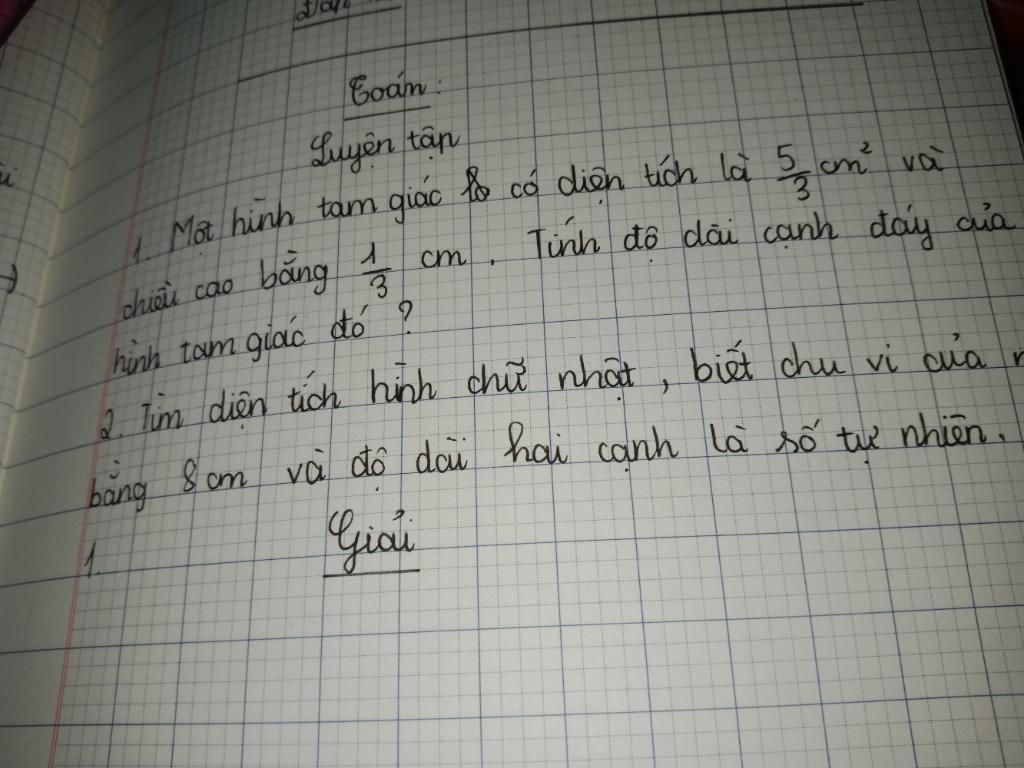 Toán:
Luyện tận
1. Một hình tam giác có diện tích là 5/3 cm² và
chiều cao bằng 1/3 cm. Tính độ dài cạnh đáy của
hình tam giác đó?
2. Tìm diện tích hình chữ nhật, biết chu vi của
bằng 8 cm và độ dài hai cạnh là số tự nhiên.
Giải
1.